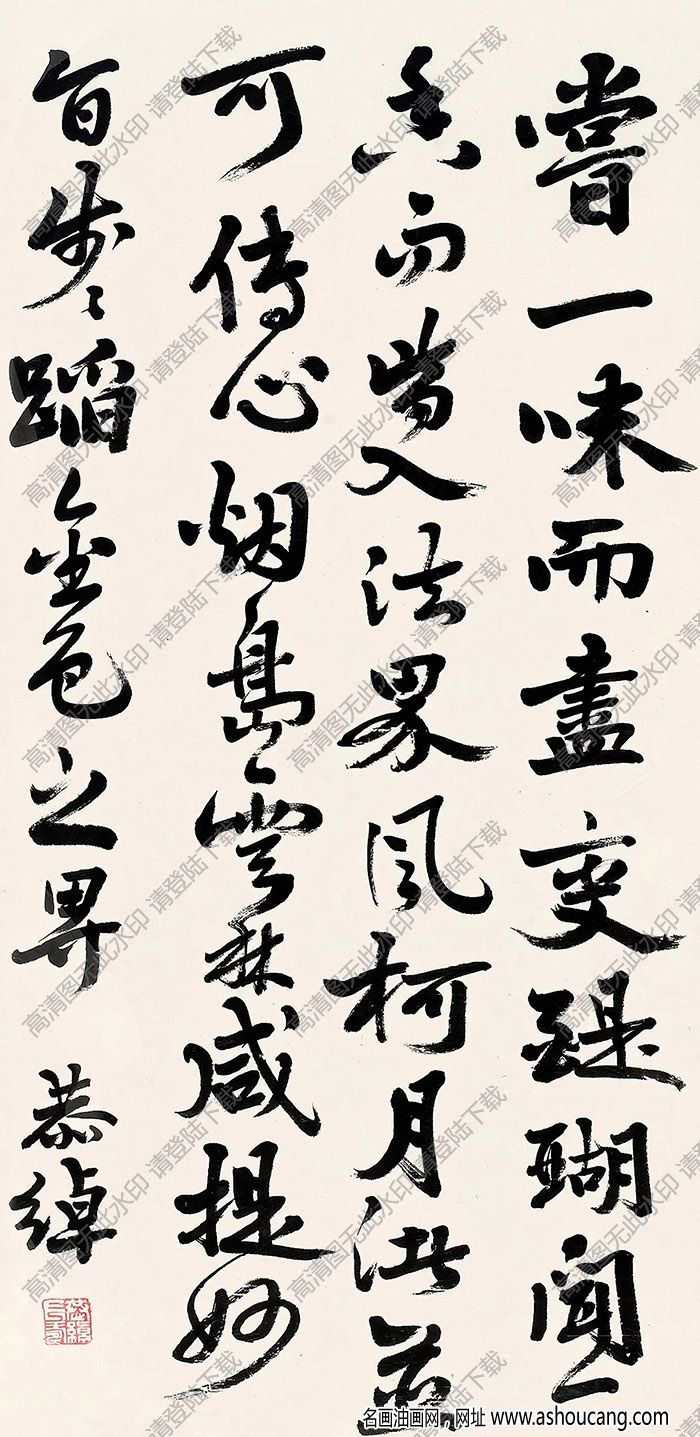 嘗一味而盡變醍醐聞一
香而皆入法界風柯月渚並
可傳心烟島雲林咸提妙
旨步〻蹈金色之界
恭綽
高清图无此水印 请登陆下载
名画油画网，网址 www.ashoucang.com